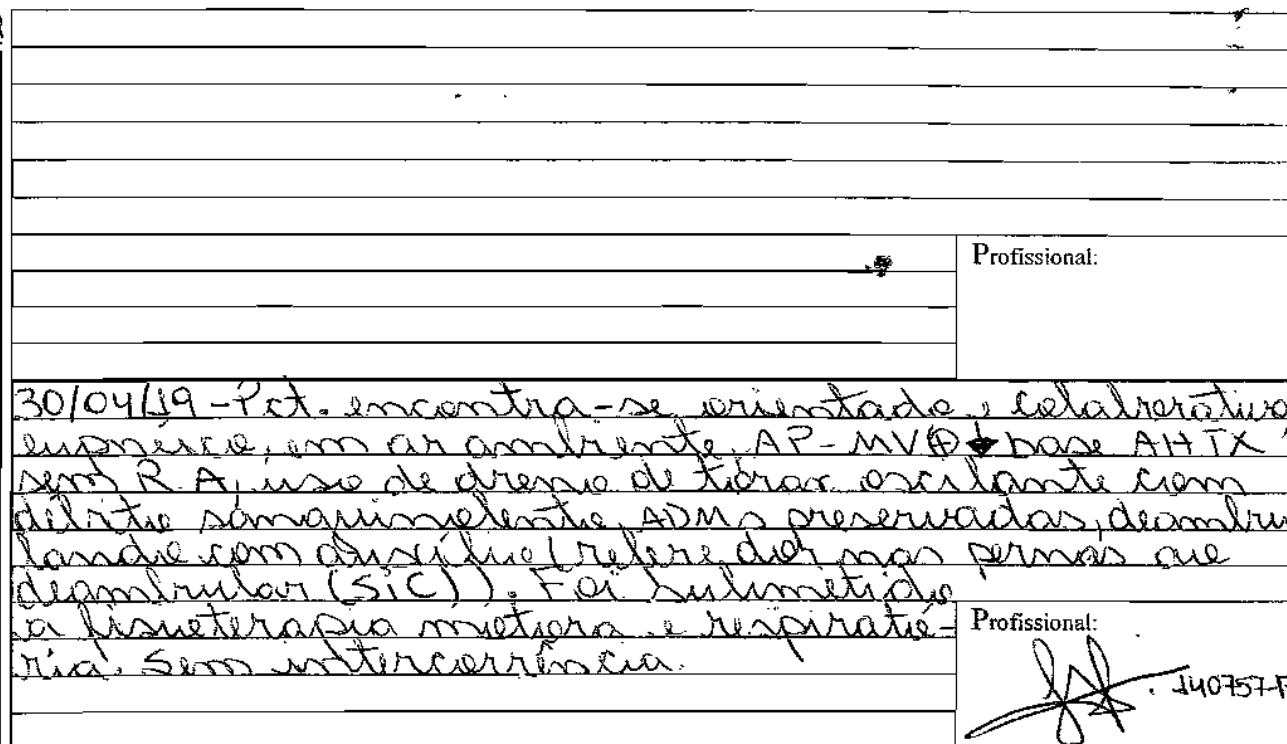 Profissional:
30/04/19 - Pct. encontra-se orientado, colaborativo
eupneico, em ar ambiente, AP - MV⊕ ↓ base AHTX
sem R.A, uso de dreno de tórax oscilante com
débito sanguinolento, ADMs preservadas, deambu
lando com auxílio (refere dor nas pernas ao
deambular (SiC)). Foi submetido
a fisioterapia motora e respirató-
ria. Sem intercorrência.
Profissional:
140757-F